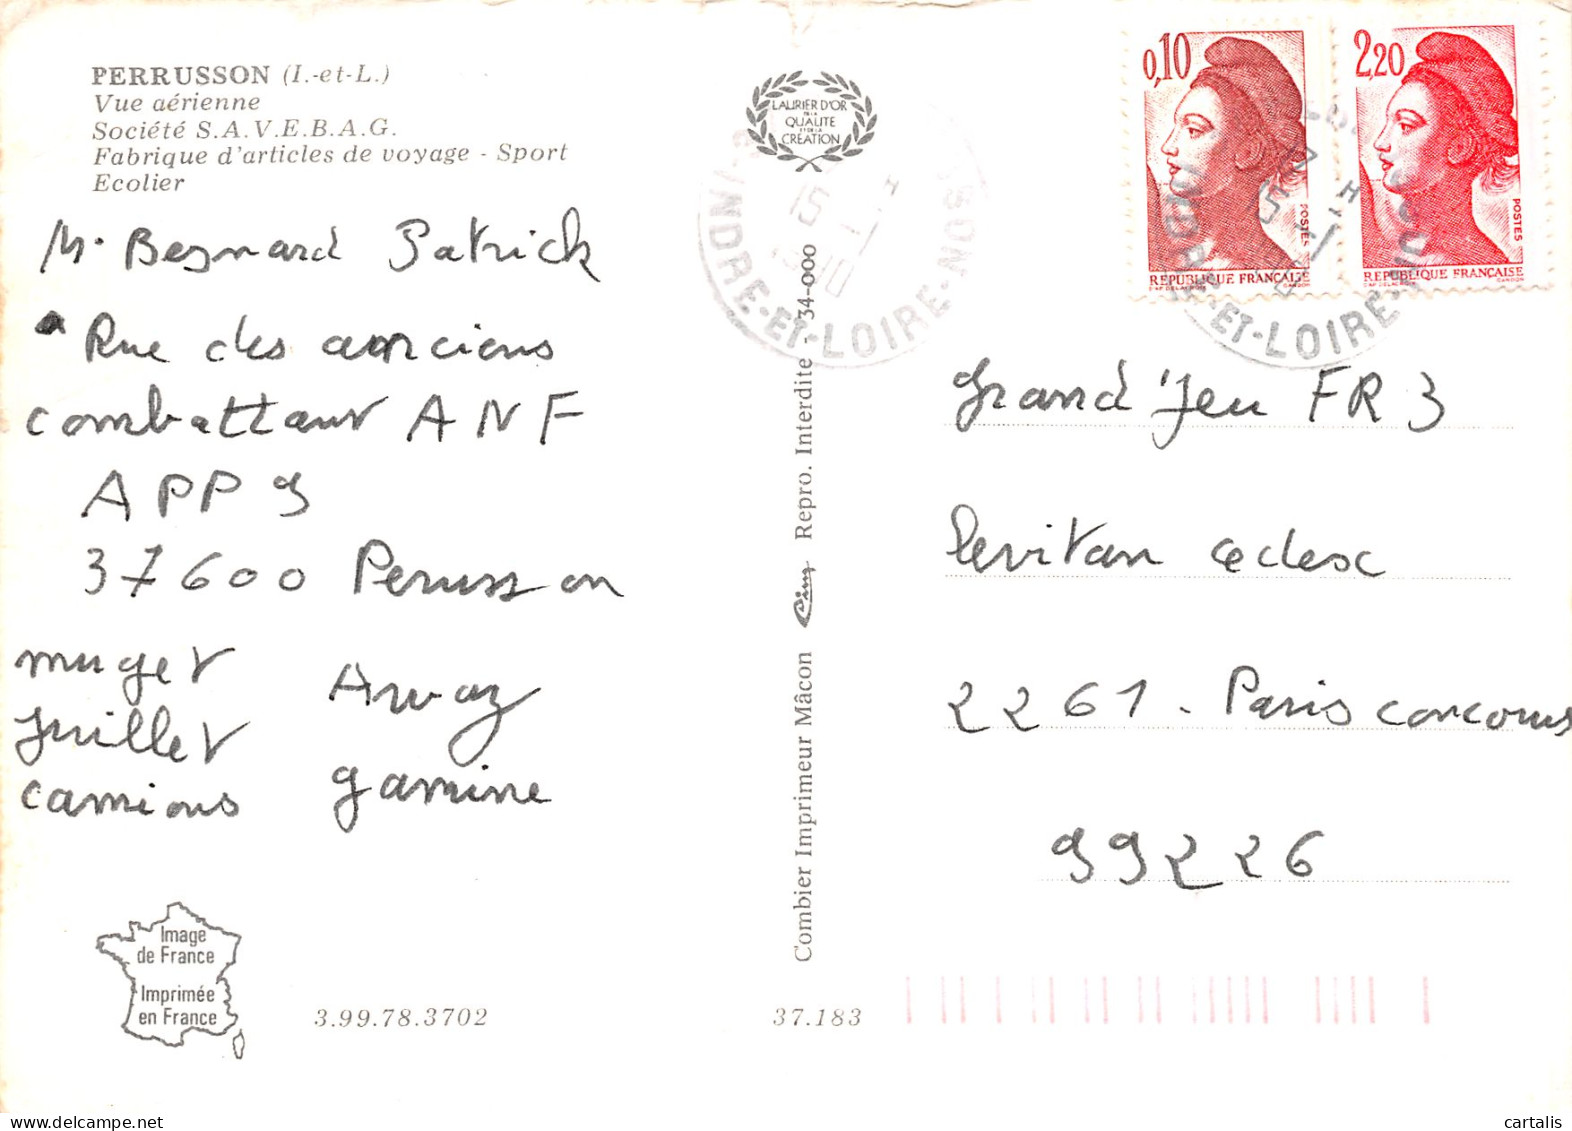 PERRUSSON (I.-et-L.)
Vue aérienne
Société S.A.V.E.B.A.G.
Fabrique d'articles de voyage - Sport
Ecolier
M. Besnard Patrick
Rue des anciens
combattant ANF
APP 9
37600 Perusson
muget
Juillet
camions
Arvoz
gamine
Image
de France
Imprimée
en France
3.99.78.3702
37.183
LAURIER D'OR
DE LA
QUALITE
ET DE LA
CREATION
Combier Imprimeur Mâcon
Cim
Repro. Interdite - 34-000
15
INDRE-ET-LOIRE
0,10
POSTES
REPUBLIQUE FRANÇAISE
2,20
POSTES
REPUBLIQUE FRANÇAISE
15
ET-LOIRE
Grand Jeu FR 3
Levitan cedesc
2261 - Paris concours
99226
cartalis